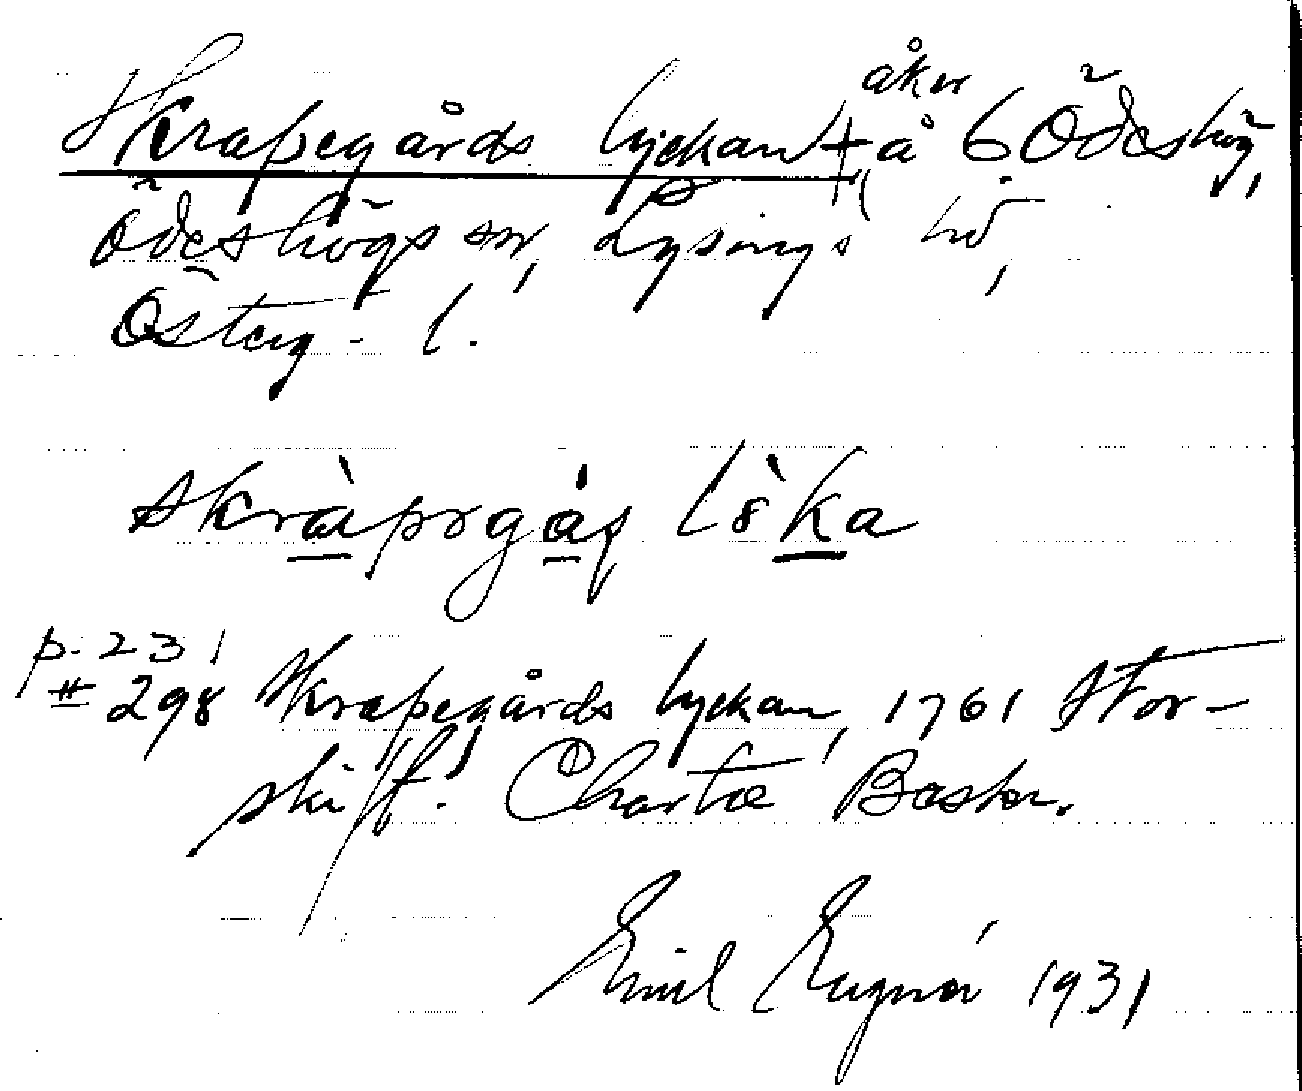 Skrapegårds lyckan ‡ åker å 6 Ödeshög,
Ödeshögs sn, Lysings hd,
Österg. l.
skràpegá lka
p. 231
# 298 Skrapegårds lyckan, 1761 Stor-
skift. Charta Beskr.
Emil 1931